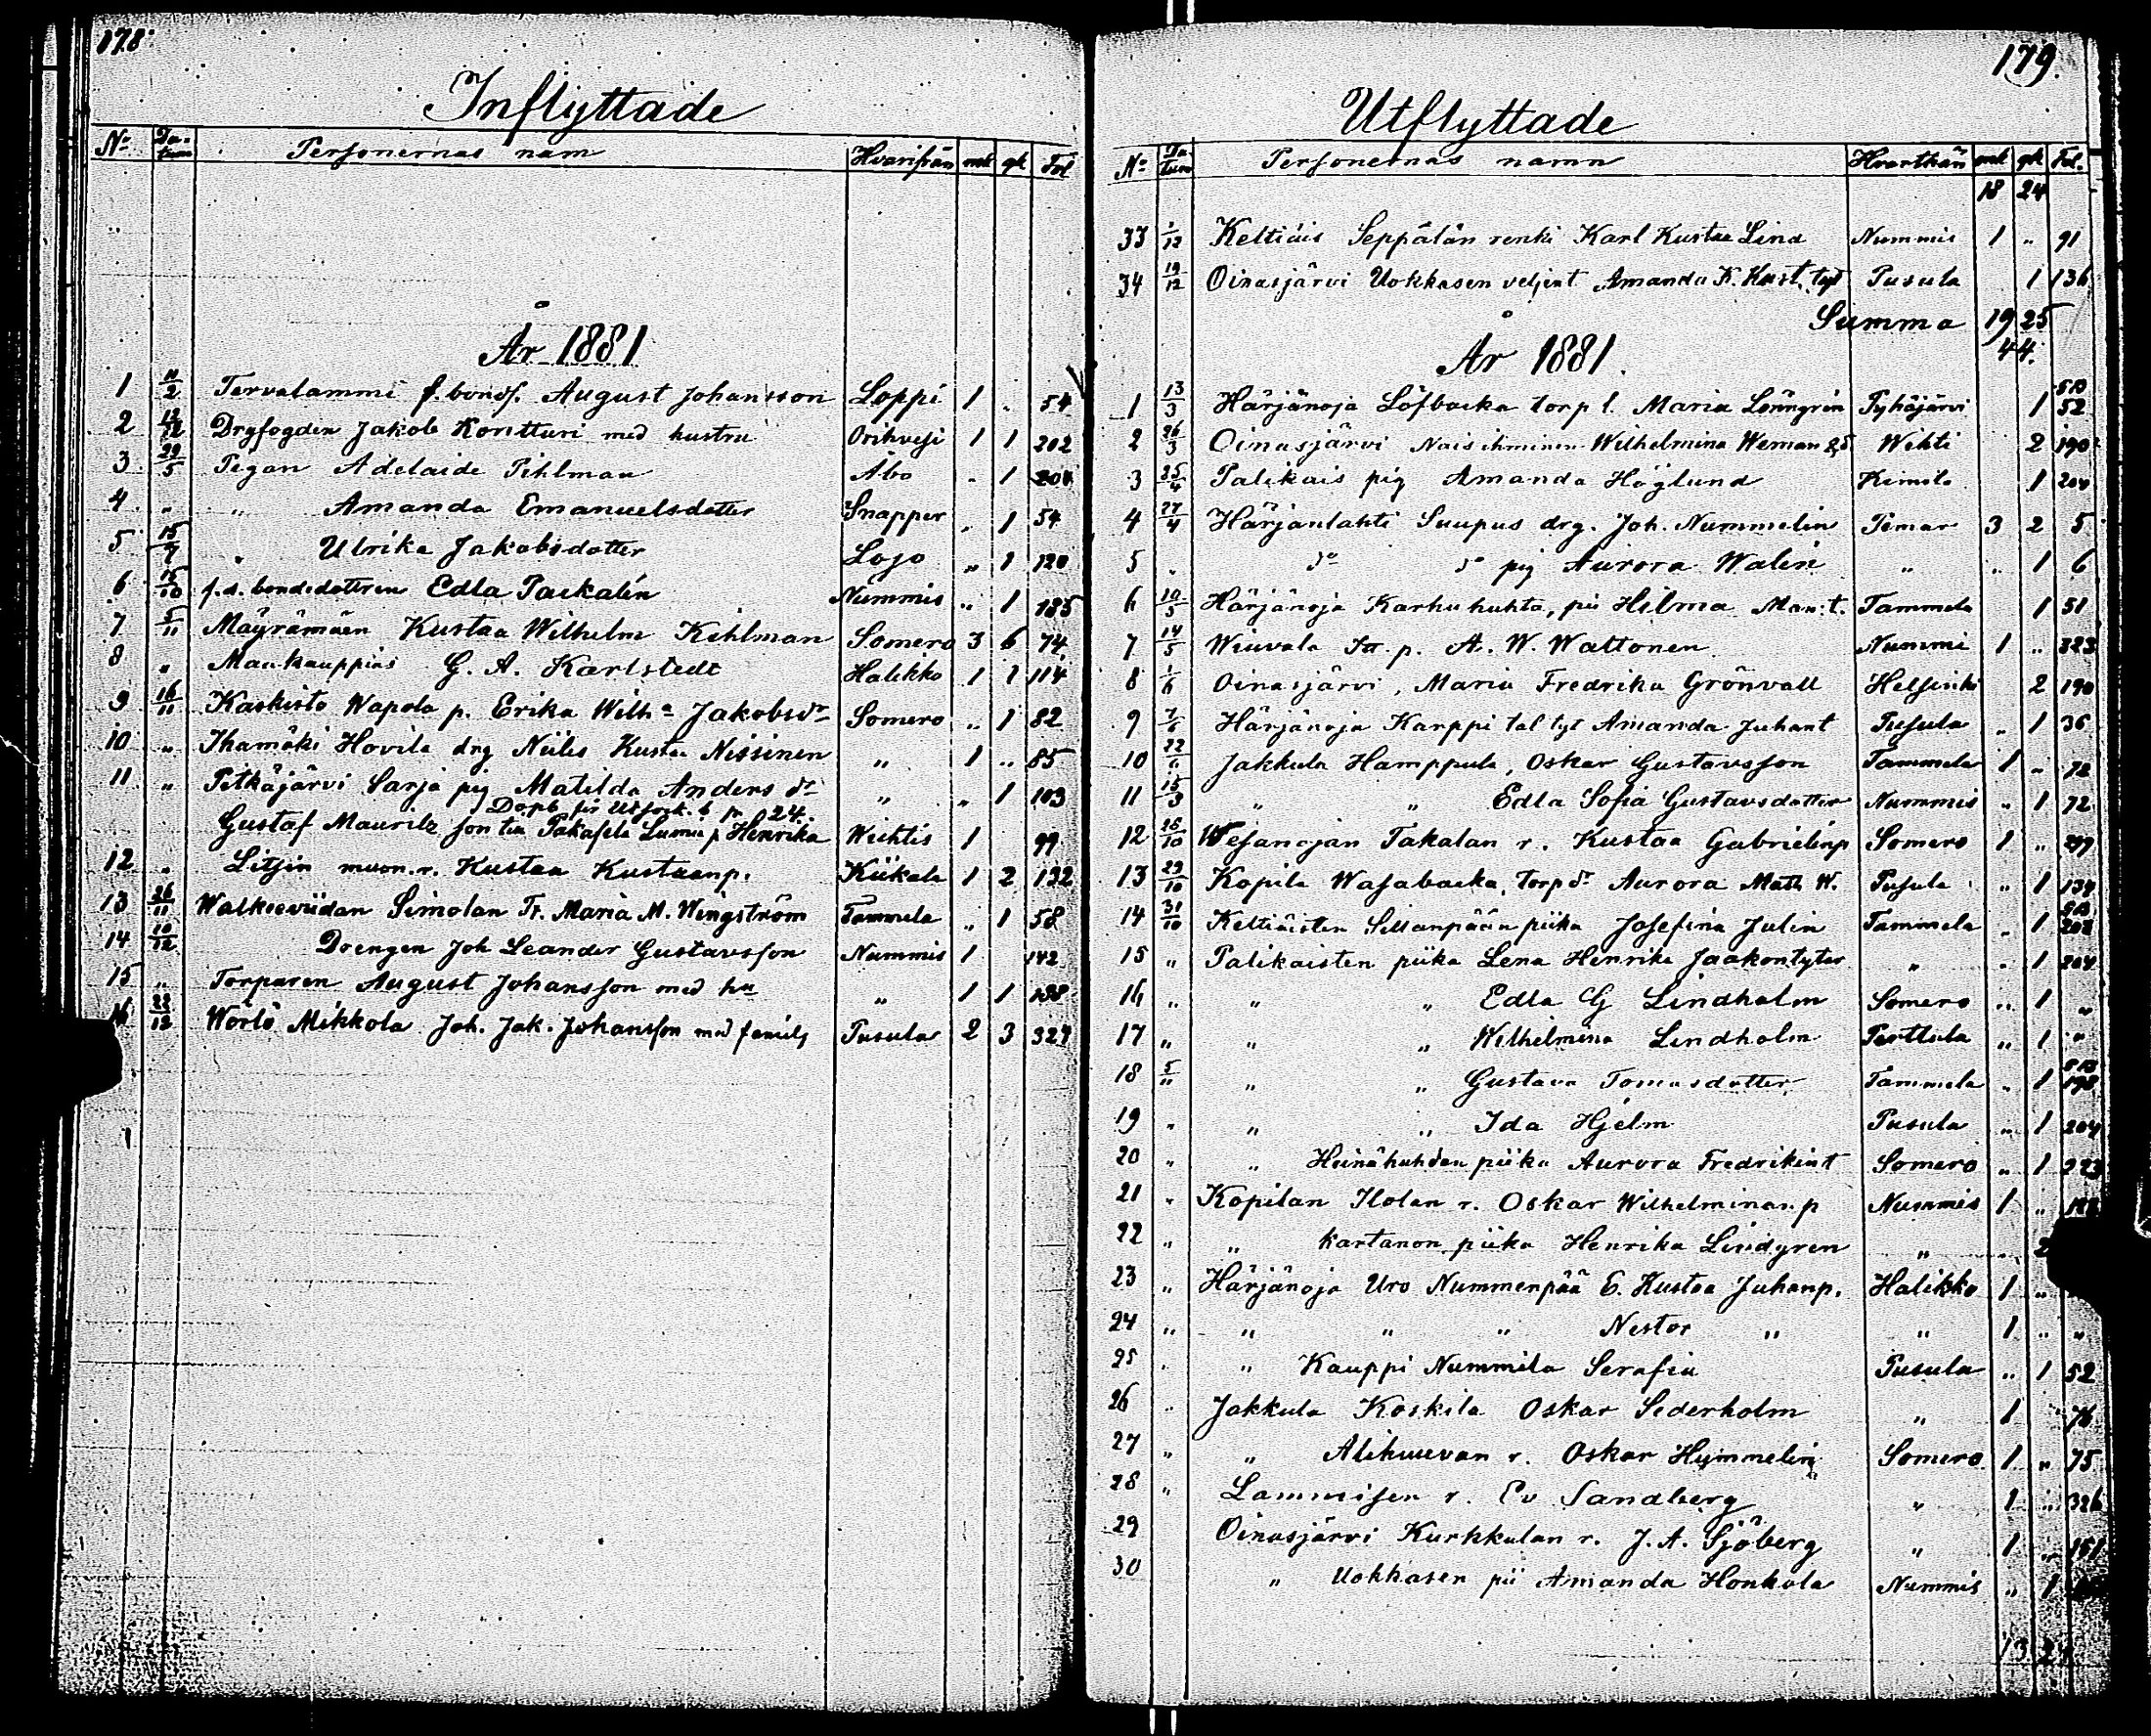 178.
Inflyttade
No Datum Personernas nam Hvarifrån mk qk Fol
År 1881
1 11/2 Tervalammi f. bonds. August Johansson Loppi 1 " 54
2 Drgfogden Jakob Kontturi med hustru Orihvesi 1 1 202
3 29/5 Pigan Adelaide Pihlman Åbo " 1 204
4 " " Amanda Emanuelsdotter Snappert " 1 54
5 15/7 " Ulrika Jakobsdotter Lojo " 1 120
6 15/10 f.d. bondedottren Edla Packalén Nummis " 1 185
7 5/11 Mäyrämäen Kustaa Wilhelm Kihlman Somero 3 6 74
8 " Maakauppias G. A. Karlstedt Halikko 1 1 114
9 16/11 Kaskisto Wapola p. Erika Wilha Jakobsdr Somero " 1 82
10 " Ihamäki Hovila drg Niiles Kustaa Nissinen " 1 " 85
11 " Pitkäjärvi Sarja pig Matilda Anders dr " " 1 103
Gustaf Mauritz son till Henrika Wichtis 1 99
12 " Litjin muon. r. Kustaa Kustaanp. Kiikala 1 2 132
13 26/11 Walkeeviidan Simolan Tr. Maria M. Wingström Tammela " 1 58
14 10/12 Drengen Joh Leander Gustavsson Nummis 1 142
15 " Torparen August Johansson med hu " 1 1 138
16 22/12 Wörlö Mikkola Joh. Jak. Johansson med familj Pusula 2 3 327
179.
Utflyttade
No Datum Personernas namn Hvarthän mk qk Fol.
18 24
33 1/12 Keltiäis Seppälän renki Karl Kustaa Lind Nummis 1 " 91
34 19/12 Oinasjärvi Uokkasen veljent Amanda K. Kust. tyt Pusula 1 136
Summa 19 25
44.
År 1881.
1 13/3 Härjänoja Löfbacka torp l. Maria Lönngrén Pyhäjärvi 1 52
2 26/3 Oinasjärvi Naisihminen Wilhelmina Weman Wihti 2 190
3 25/4 Palikais pig Amanda Höglund Kimito 1 204
4 27/4 Härjänlahti Suupus drg. Joh. Nummelin Pemar 3 2 5
5 " do do pig Aurora Walén " " 1 6
6 10/5 Härjänoja Karhuhuhta, pii Hilma Man:t. Tammela 1 51
7 14/5 Wiuvala A. W. Waltonen Nummi 1 " 323
8 1/6 Oinasjärvi, Maria Fredrika Grönvall Helsinki 2 190
9 7/6 Härjänoja Karppi tal tyt Amanda Juhant Pusula " 1 36
10 22/6 Jakkula Hamppula, Oskar Gustavsson Tammela 1 " 72
11 15/3 " " Edla Sofia Gustavsdotter Nummis " 1 72
12 15/10 Wesanojan Takalan r. Kustaa Gabrielinp Somero 1 " 297
13 29/10 Kopila Wasabacka, torp dr Aurora Math W. Pusula " 1 134
14 31/10 Keltiäisten Sillanpään piika Josefina Julin Tammela " 1 202
15 " Palikaisten piika Lena Henrika Jaakontytär " " 1 204
16 " " " Edla G Lindholm Somero " 1 "
17 " " " Wilhelmina Lindholm Perttula " 1 "
18 5/11 " " Gustava Tomasdotter Tammela " 1 198
19 " " " Ida Hjelm Pusula " 1 204
20 " " Heinähuhdan piika Aurora Fredrikint Somero " 1 223
21 " Kopilan Ilolan r. Oskar Wilhelminan.p Nummis 1 "
22 " " kartanon piika Henrika Lindgren " " 2
23 " Härjänoja Uro Nummenpää E. Kustaa Juhanp. Halikko 1 "
24 " " " " Nestor " " 1 " "
25 " " Kauppi Nummila Serafia Pusula " 1 52
26 " Jakkula Koskila Oskar Sederholm " 1 " 76
27 " " Alihuuevan r. Oskar Hymmelin Somero 1 " 75
28 " Lammisen r. Ev Sandberg " 1 " 326
29 Oinasjärvi Kurkkulan r. J. A. Sjöberg " 1 " 151
30 " Uokkasen pii Amanda Honkala Nummis " 1
13